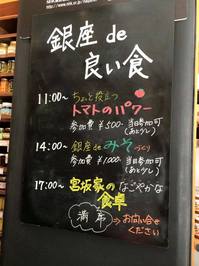 銀座 de
良い食
11:00〜 ちょっと役立つ
トマトのパワー
参加費 ¥500- 当日参加可
(あと少し)
14:00〜 銀座 de みそづくり
参加費 ¥1,000- 当日参加可
(あと少し)
17:00〜 宮坂家の なごやかな
食卓
満席 ⇒ お問い合せ
ください